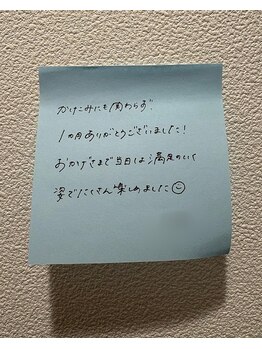 かけこみにも関わらず
1ヵ月ありがとうございました!
おかげさまで当日は満足のいく
姿でたくさん楽しめました☺